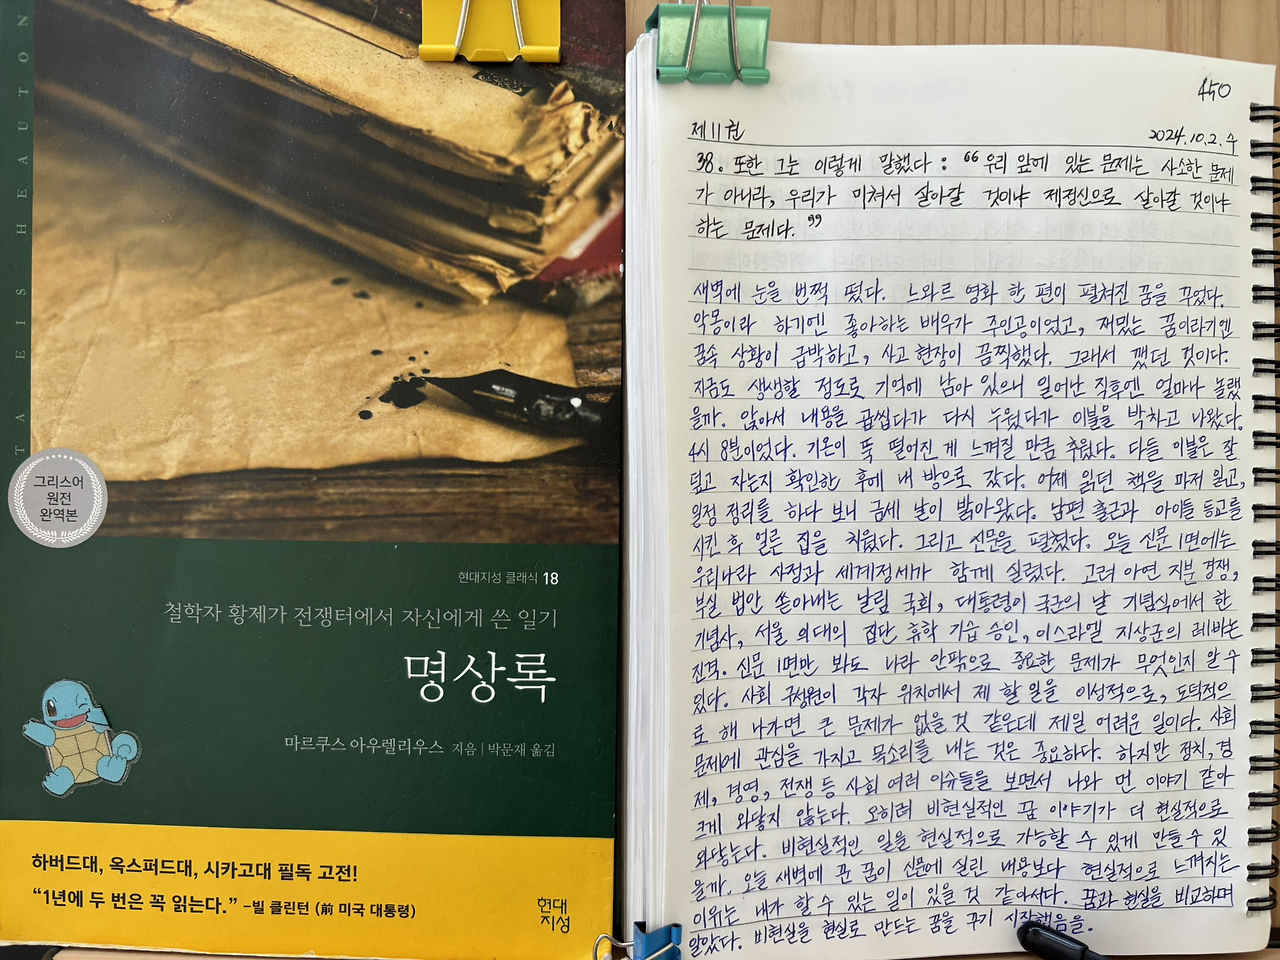 TA EIS HEAUTON
그리스어
원전
완역본
현대지성 클래식 18
철학자 황제가 전쟁터에서 자신에게 쓴 일기
명상록
마르쿠스 아우렐리우스 지음 | 박문재 옮김
하버드대, 옥스퍼드대, 시카고대 필독 고전!
“1년에 두 번은 꼭 읽는다.” –빌 클린턴 (前 미국 대통령)
현대
지성
450
제11권
2024.10.2.수
38. 또한 그는 이렇게 말했다 : “우리 앞에 있는 문제는 사소한 문제
가 아니라, 우리가 미쳐서 살아갈 것이냐 제정신으로 살아갈 것이냐
하는 문제다.”
새벽에 눈을 번쩍 떴다. 느와르 영화 한 편이 펼쳐진 꿈을 꾸었다.
악몽이라 하기엔 좋아하는 배우가 주인공이었고, 재밌는 꿈이라기엔
꿈속 상황이 급박하고, 사고 현장이 끔찍했다. 그래서 깼던 것이다.
지금도 생생할 정도로 기억에 남아 있으니 일어난 직후엔 얼마나 놀랬
을까. 앉아서 내용을 곱씹다가 다시 누웠다가 이불을 박차고 나왔다.
4시 8분이었다. 기온이 뚝 떨어진 게 느껴질 만큼 추웠다. 다들 이불은 잘
덮고 자는지 확인한 후에 내 방으로 갔다. 어제 읽던 책을 마저 읽고,
일정 정리를 하다 보니 금세 날이 밝아왔다. 남편 출근과 아이들 등교를
시킨 후 얼른 집을 치웠다. 그리고 신문을 펼쳤다. 오늘 신문 1면에는
우리나라 사정과 세계정세가 함께 실렸다. 고려 아연 지분 경쟁,
부실 법안 쏟아내는 날림 국회, 대통령이 국군의 날 기념식에서 한
기념사, 서울 의대의 집단 휴학 기습 승인, 이스라엘 지상군의 레바논
진격. 신문 1면만 봐도 나라 안팎으로 중요한 문제가 무엇인지 알 수
있다. 사회 구성원이 각자 위치에서 제 할 일을 이성적으로, 도덕적으
로 해 나가면 큰 문제가 없을 것 같은데 제일 어려운 일이다. 사회
문제에 관심을 가지고 목소리를 내는 것은 중요하다. 하지만 정치, 경
제, 경영, 전쟁 등 사회 여러 이슈들을 보면서 나와 먼 이야기 같아
크게 와닿지 않는다. 오히려 비현실적인 꿈 이야기가 더 현실적으로
와닿는다. 비현실적인 일을 현실적으로 가능할 수 있게 만들 수 있
을까. 오늘 새벽에 꾼 꿈이 신문에 실린 내용보다 현실적으로 느껴지는
이유는 내가 할 수 있는 일이 있을 것 같아서다. 꿈과 현실을 비교하며
알았다. 비현실을 현실로 만드는 꿈을 꾸기 시작했음을.